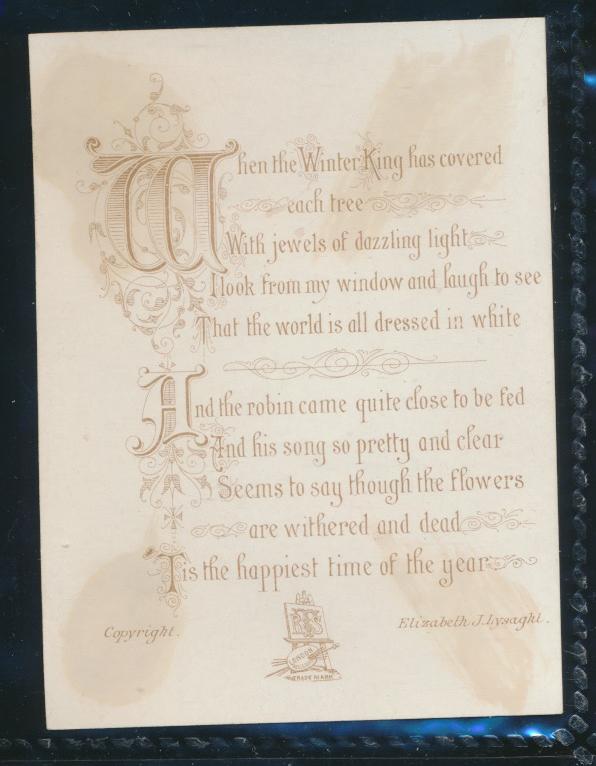 When the Winter King has covered
each tree
With jewels of dazzling light
I look from my window and laugh to see
That the world is all dressed in white
And the robin came quite close to be fed
And his song so pretty and clear
Seems to say though the flowers
are withered and dead
Tis the happiest time of the year
Copyright.
Elizabeth J. Lysaght.
LONDON
TRADE MARK